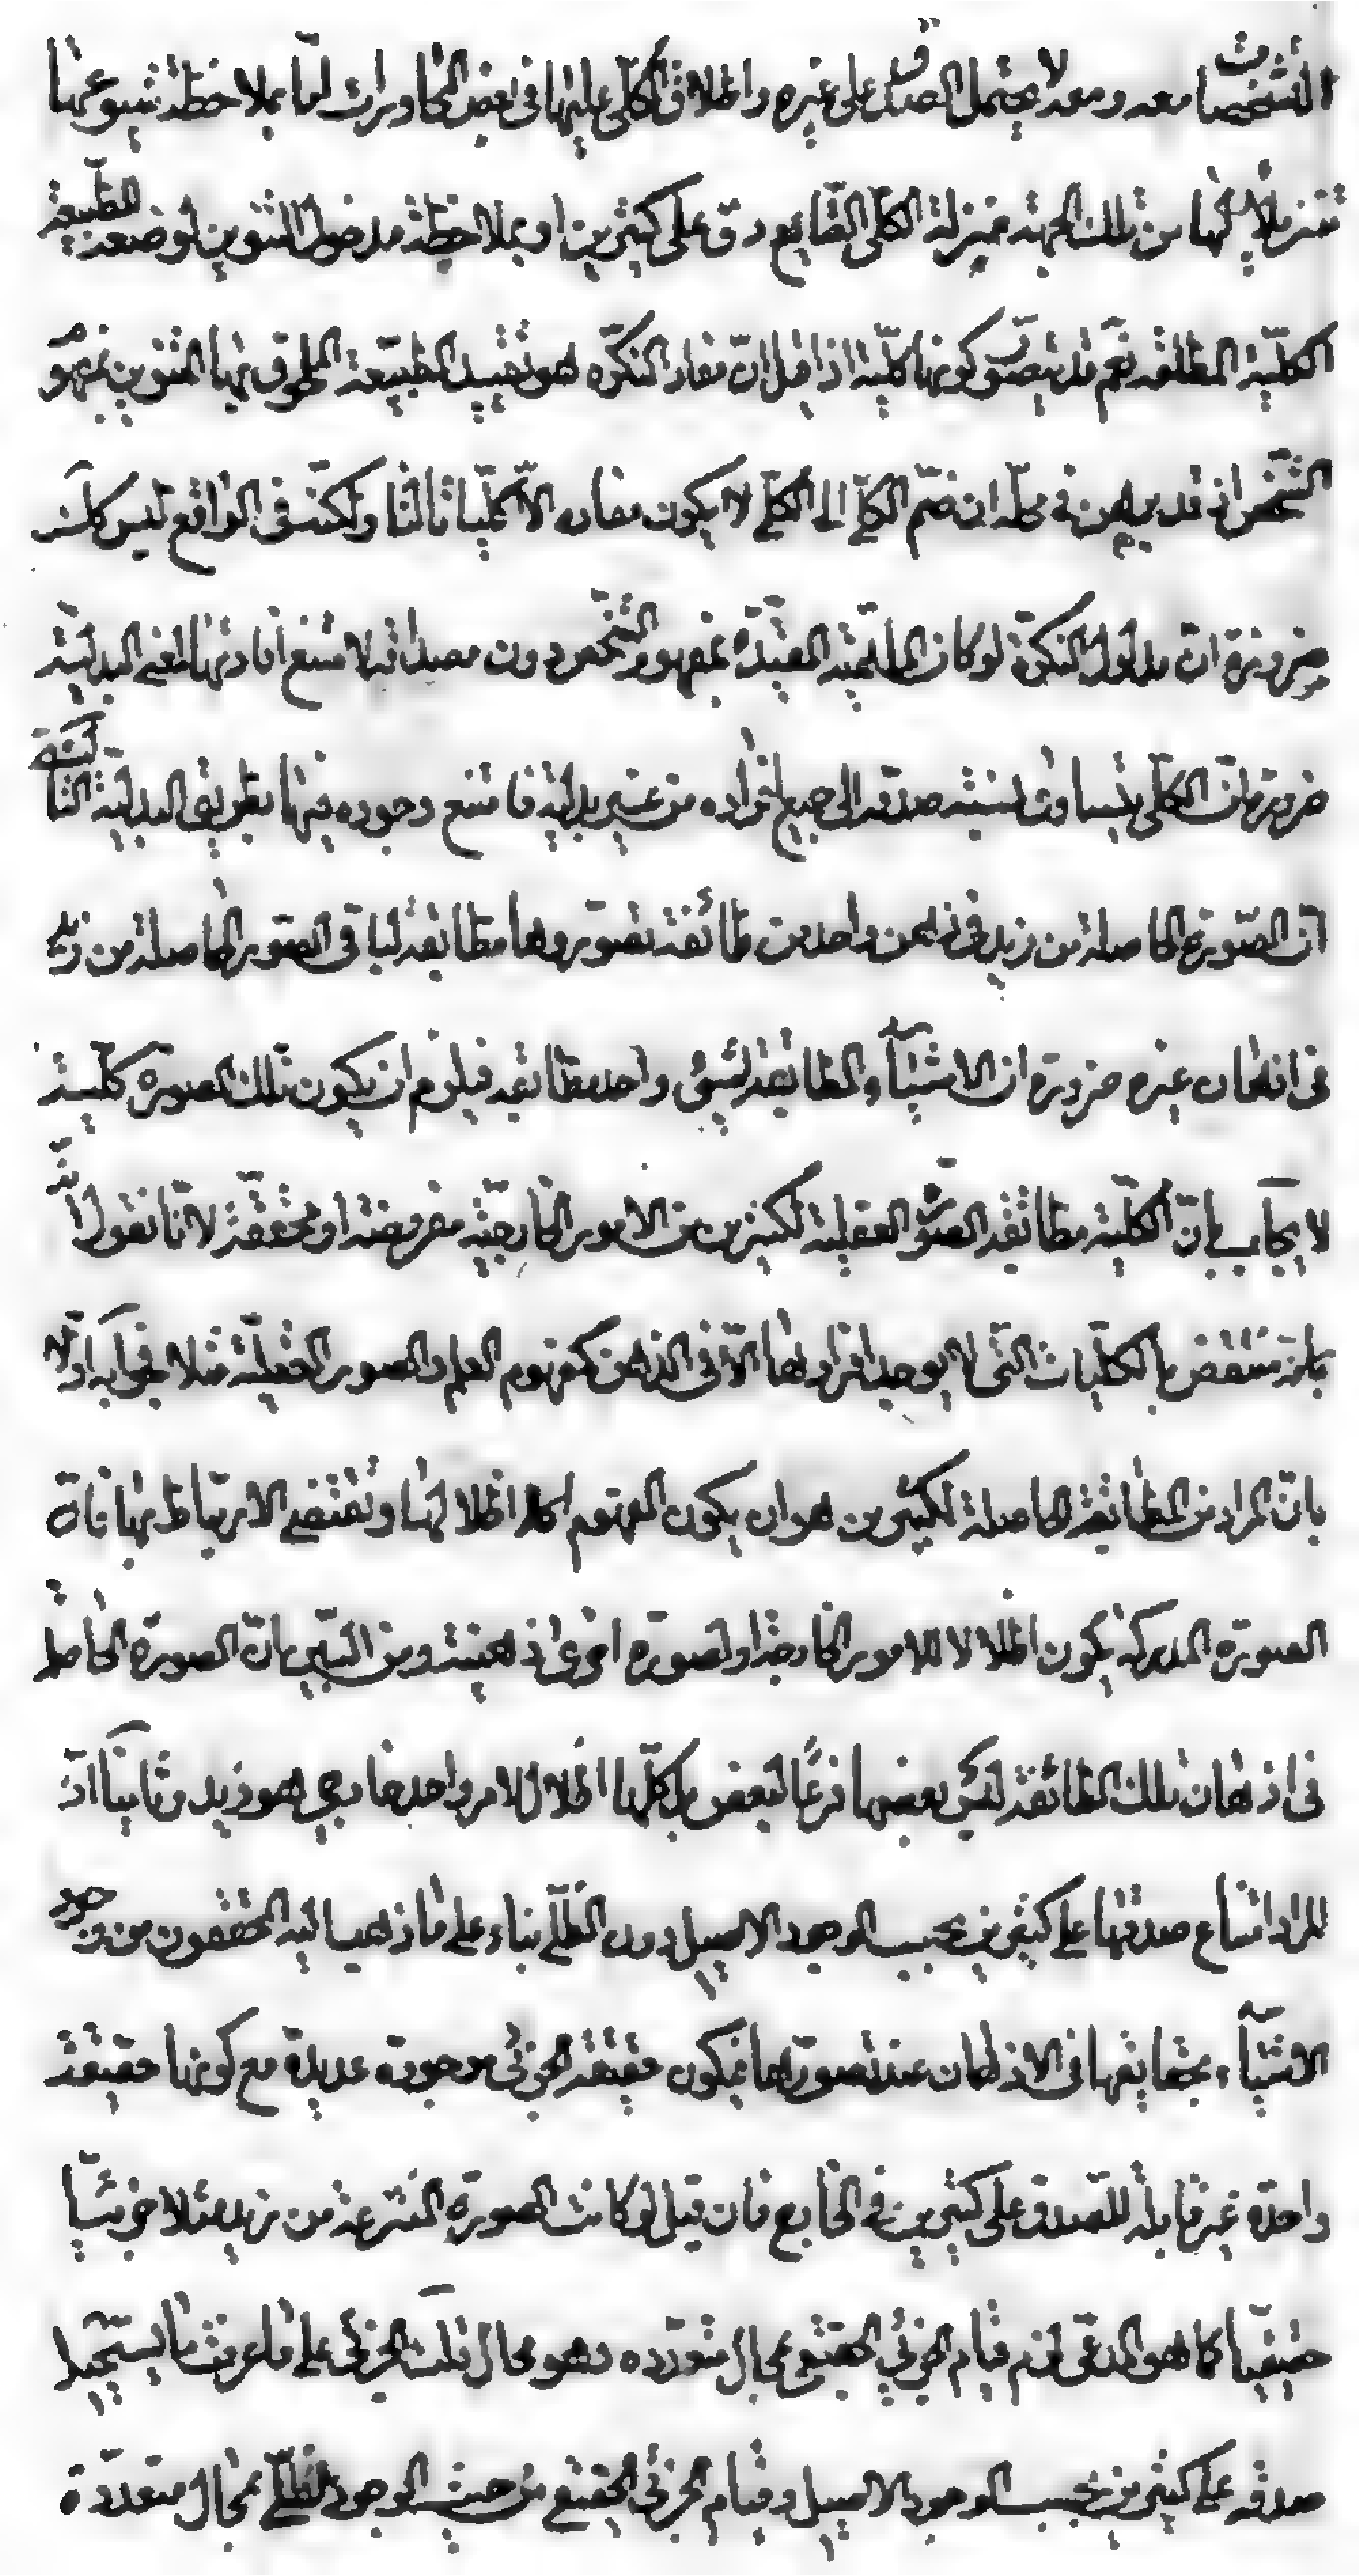 التشخصات معه ومعه لا يحتمل الصدق على غيره واطلاق الكلي عليها في بعض المحاورات اما بملاحظة شيوعها
تنزيلا لها من تلك الجهة بمنزلة الكلي الشايع دق على كثيرين او بملاحظة مدخول التنوين لوضعه للطبيعة
الكلية المطلقه نعم قد يتصور كونها كلية اذا قيل ان مفاد النكره هو تقييد الطبيعة الملحوق بها التنوين بمفهوم
التشخص اذ قد برهن في محله ان ضم الكلي الى الكلي لا يكون مفاده الا كليا ثالثا ولكنه في الواقع ليس كك
ضرورة ان مدلول النكرة لو كان الماهية المقيدة بمفهوم التشخص دون مصداقه لامتنع افادتها لمعنى البدلية
ضرورة ان الكلي يتساوى نسبة صدقه الى جميع افراده من غير بدلية فامتنع وجوده فيها بطريق البدلية الثا
ان الصورة الحاصلة من زيد في ذهن واحد من طائفة تصوروها مطابقة لباقي الصور الحاصلة من زيد
في اذهان غيره ضرورة ان الاشياء المطابقة لشيئ واحد مطابقه فيلزم ان يكون تلك الصورة كلية
لا يجاب بان الكلية مطابقة الصور العقلية لكثيرين من الامور الخارجية مفروضة او محققة لانا نقول انه
منتقض بالكليات التي لا يوجد افرادها الا في الذهن كمفهوم العلم والصور العقلية مثلا
بان المراد من المطابقة الحاصلة لكثيرين هو ان يكون المفهوم اظلالا لها ويقتضي الارتباط بها فان
الصورة المدركة يكون اظلالا للامور الخارجة او لصورة اخرى ذهنية ومن البين بان الصورة الحاصلة
في اذهان تلك الطائفة ليس بعضها فرعا لبعض بل كلها اظلال لامر واحد خارجي هو زيد وثانيا ان
المراد امتناع صدقها على كثيرين بحسب الوجود الاصيل دون الظلي بناء على ما ذهب اليه المحققون من وجود
الاشياء بحقايقها في الاذهان عند تصورها فيكون حقيقة الجزئي موجودة عديدة مع كونها حقيقة
واحدة غير قابلة للصدق على كثيرين في الخارج فان قيل لو كانت الصورة المنتزعة من زيد مثلا جزئيا
حقيقيا كما هو المدعى لزم قيام الجزئي الحقيقي بمحال متعدده وهو محال قلت الجزئي على ما عرفت ما يستحيل
صدقه على كثيرين بحسب الوجود الاصيل وقيام الجزئي الحقيقي من حيث الوجود الظلي بمحال متعددة